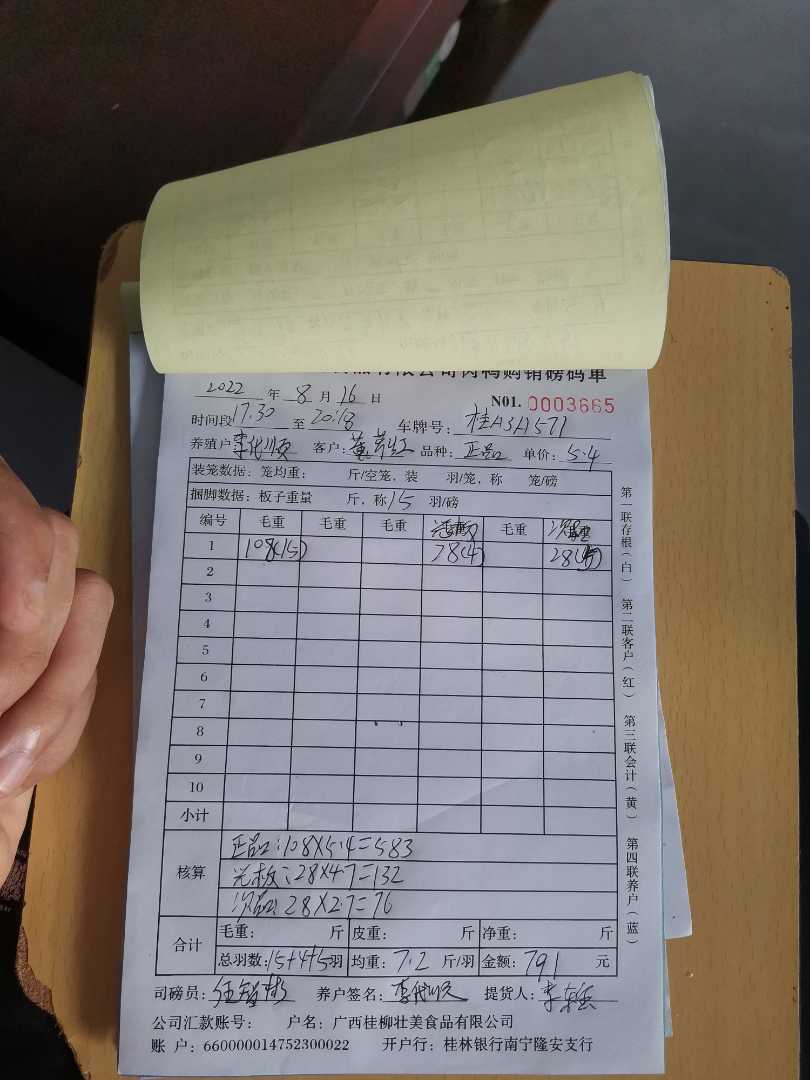 有限公司肉鸭购销磅码单
2022 年 8 月 16 日 N01. 0003665
时间段 17:30 至 20:18 车牌号: 桂A3A571
养殖户: 李代顺 客户: 品种: 正品 单价: 5.4
装笼数据: 笼均重: 斤/空笼, 装 羽/笼, 称 笼/磅
捆脚数据: 板子重量 斤, 称 15 羽/磅
编号 毛重 毛重 毛重 毛重
1 108(15) 28(4) 28
2
3
4
5
6
7
8
9
10
小计
核算
正品: 108×5.4=583
光板: 28×4.7=132
次品: 28×2.7=76
合计
毛重: 斤 皮重: 斤 净重: 斤
总羽数: 15+4+5 羽 均重: 7.2 斤/羽 金额: 791 元
司磅员: 养户签名: 李代顺 提货人: 李
公司汇款账号: 户名: 广西桂柳壮美食品有限公司
账 户: 660000014752300022 开户行: 桂林银行南宁隆安支行
第一联存根(白) 第二联客户(红) 第三联会计(黄) 第四联养户(蓝)